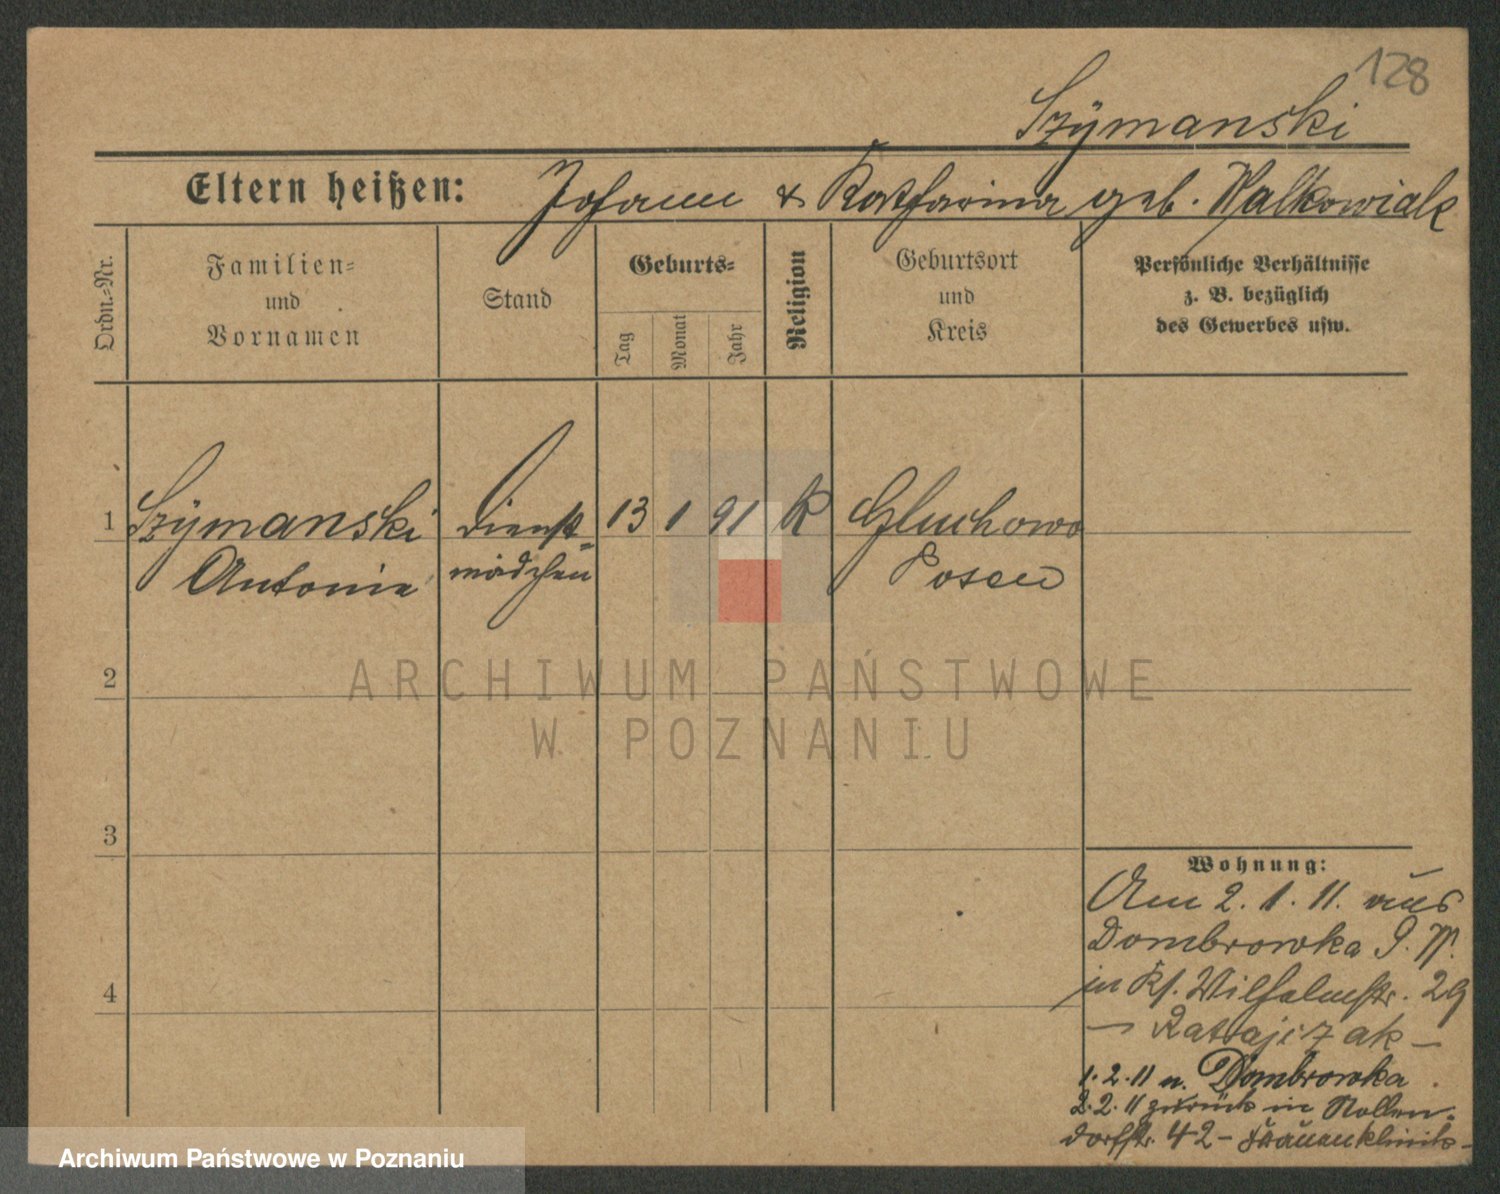 128
Szÿmanski
Eltern heißen: Johann & Katharina geb. Walkowiak
Ordn.-Nr.
Familien-
und
Vornamen
Stand
Geburts-
Tag
Monat
Jahr
Religion
Geburtsort
und
Kreis
Persönliche Verhältnisse
z. B. bezüglich
des Gewerbes usw.
1 Szÿmanski Dienst- 13 1 91 K Gluchowo
Antonie mädchen Posen
2
3
4
Wohnung:
Am 2. 1. 11. aus
Dombrowka P. W.
in Kl. Wilhelmstr. 29
— Ratajczak —
1. 2. 11 n. Dombrowka.
2. 2. 11 zurück in Nollen-
dorfstr. 42 - Frauenklinik -
ARCHIWUM PAŃSTWOWE
W POZNANIU
Archiwum Państwowe w Poznaniu